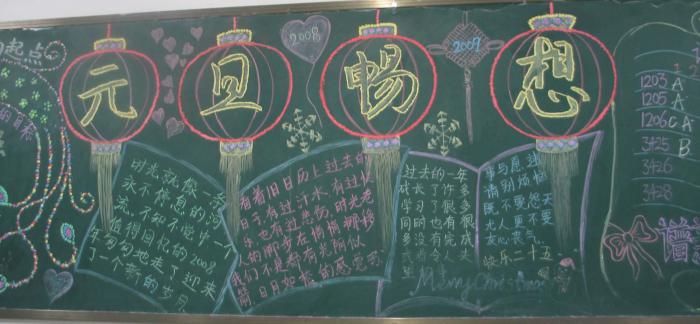 起点
元旦畅想
2008
2009
时光就像一条
永不停息的河
流，不知不觉中一
值得回忆的2008
年匆匆地走了迎来
了一个新的岁月
看着旧日历上过去的
日子有过汗水，有过快
乐，也有过悲伤，时光老
人的脚步在悄悄挪移
我们不是都有光阴似
箭，日月如梭的感觉
过去的一年
成长了许多
学习了很多
同时也有很
多没有完成
Merry Christmas
事与愿违
请别烦恼
既不要怨天
尤人更不要
灰心丧气
快乐二十五
1203 A
1205 A
1206 C A
3425 B
3426
3428